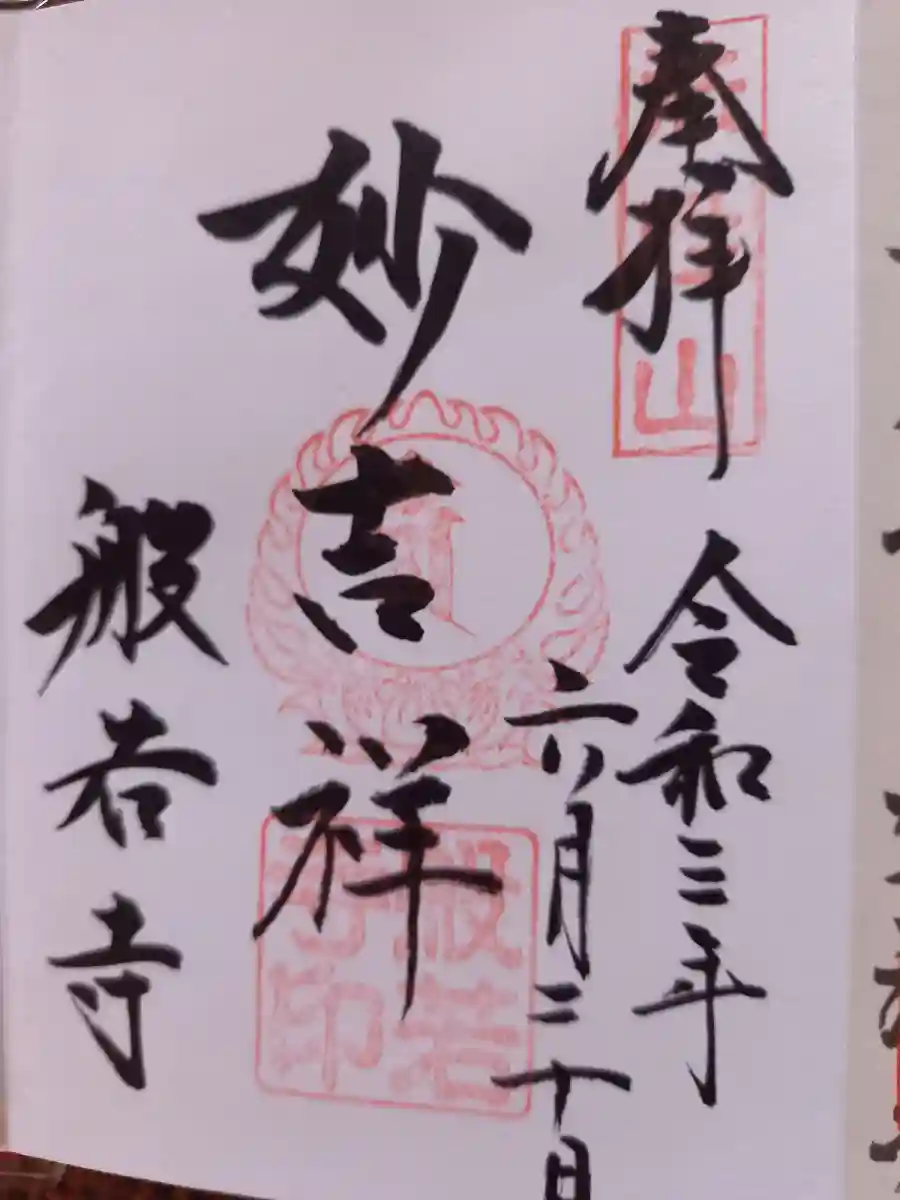 奉拝
令和三年
六月三十日
妙吉祥
般若寺
山
般若寺印